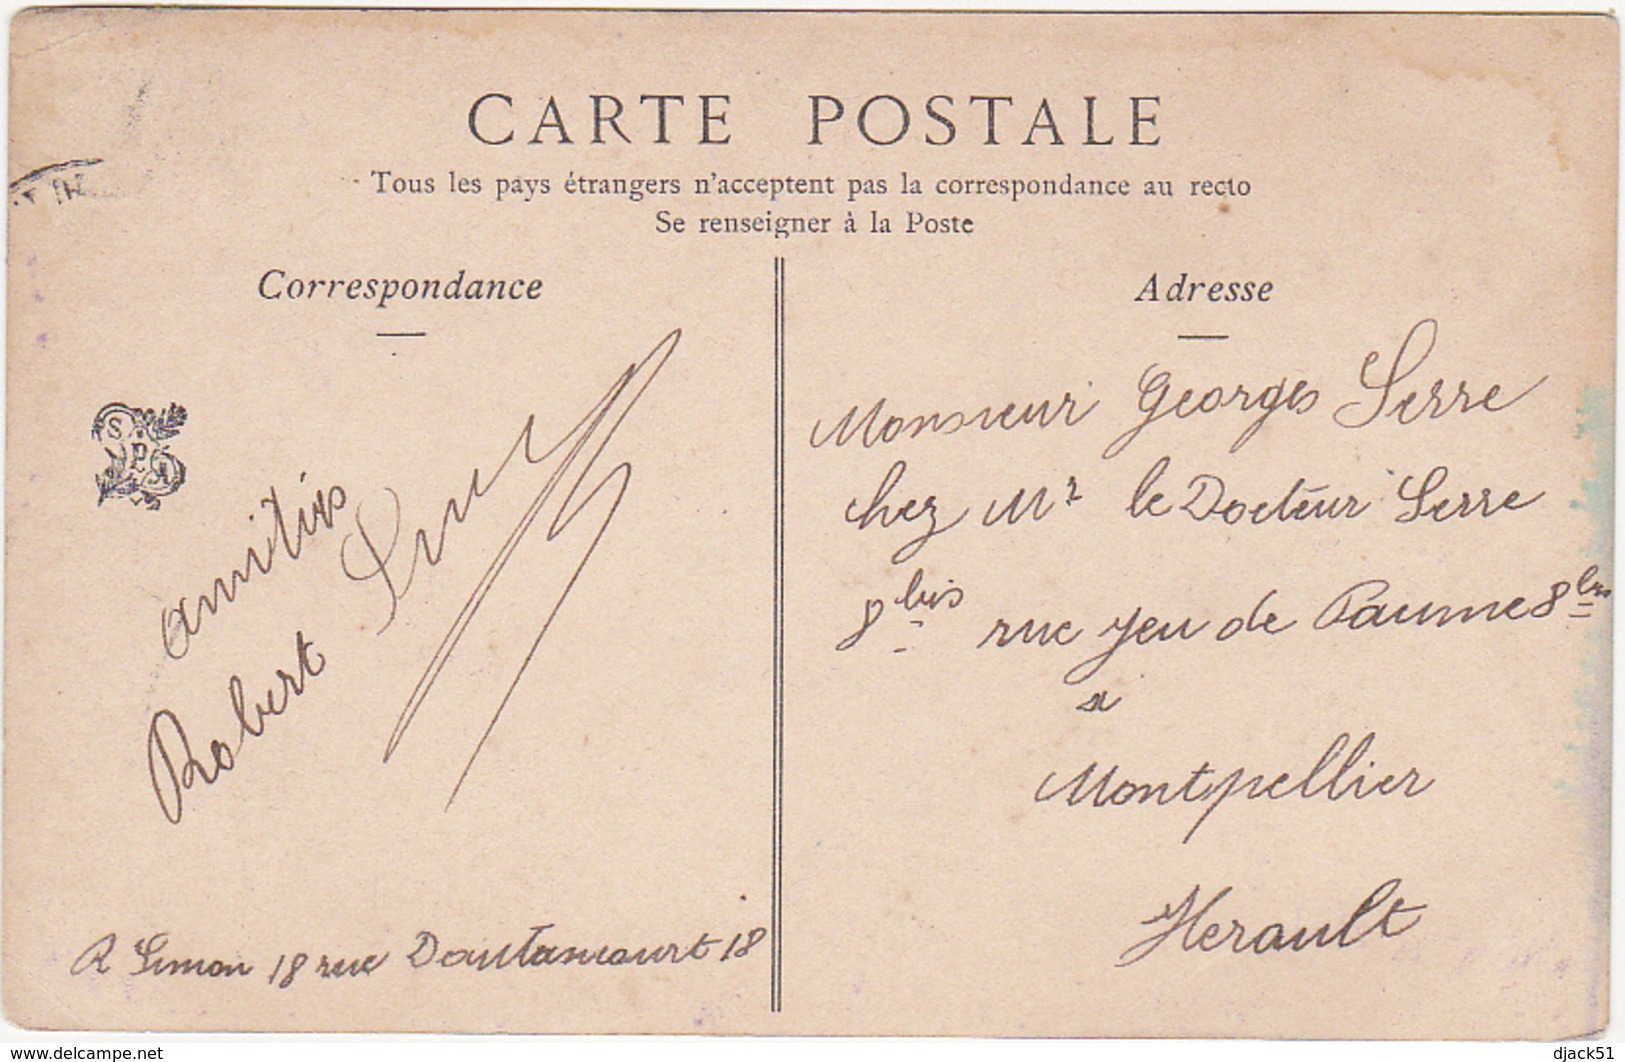 CARTE POSTALE
Tous les pays étrangers n'acceptent pas la correspondance au recto
Se renseigner à la Poste
Correspondance
amitiés
Robert
R Simon 18 rue Dautancourt 18
Adresse
Monsieur Georges Serre
chez Mr le Docteur Serre
8 bis rue jeu de Paume 8 bis
a
Montpellier
Herault
SPA
www.delcampe.net
djack51